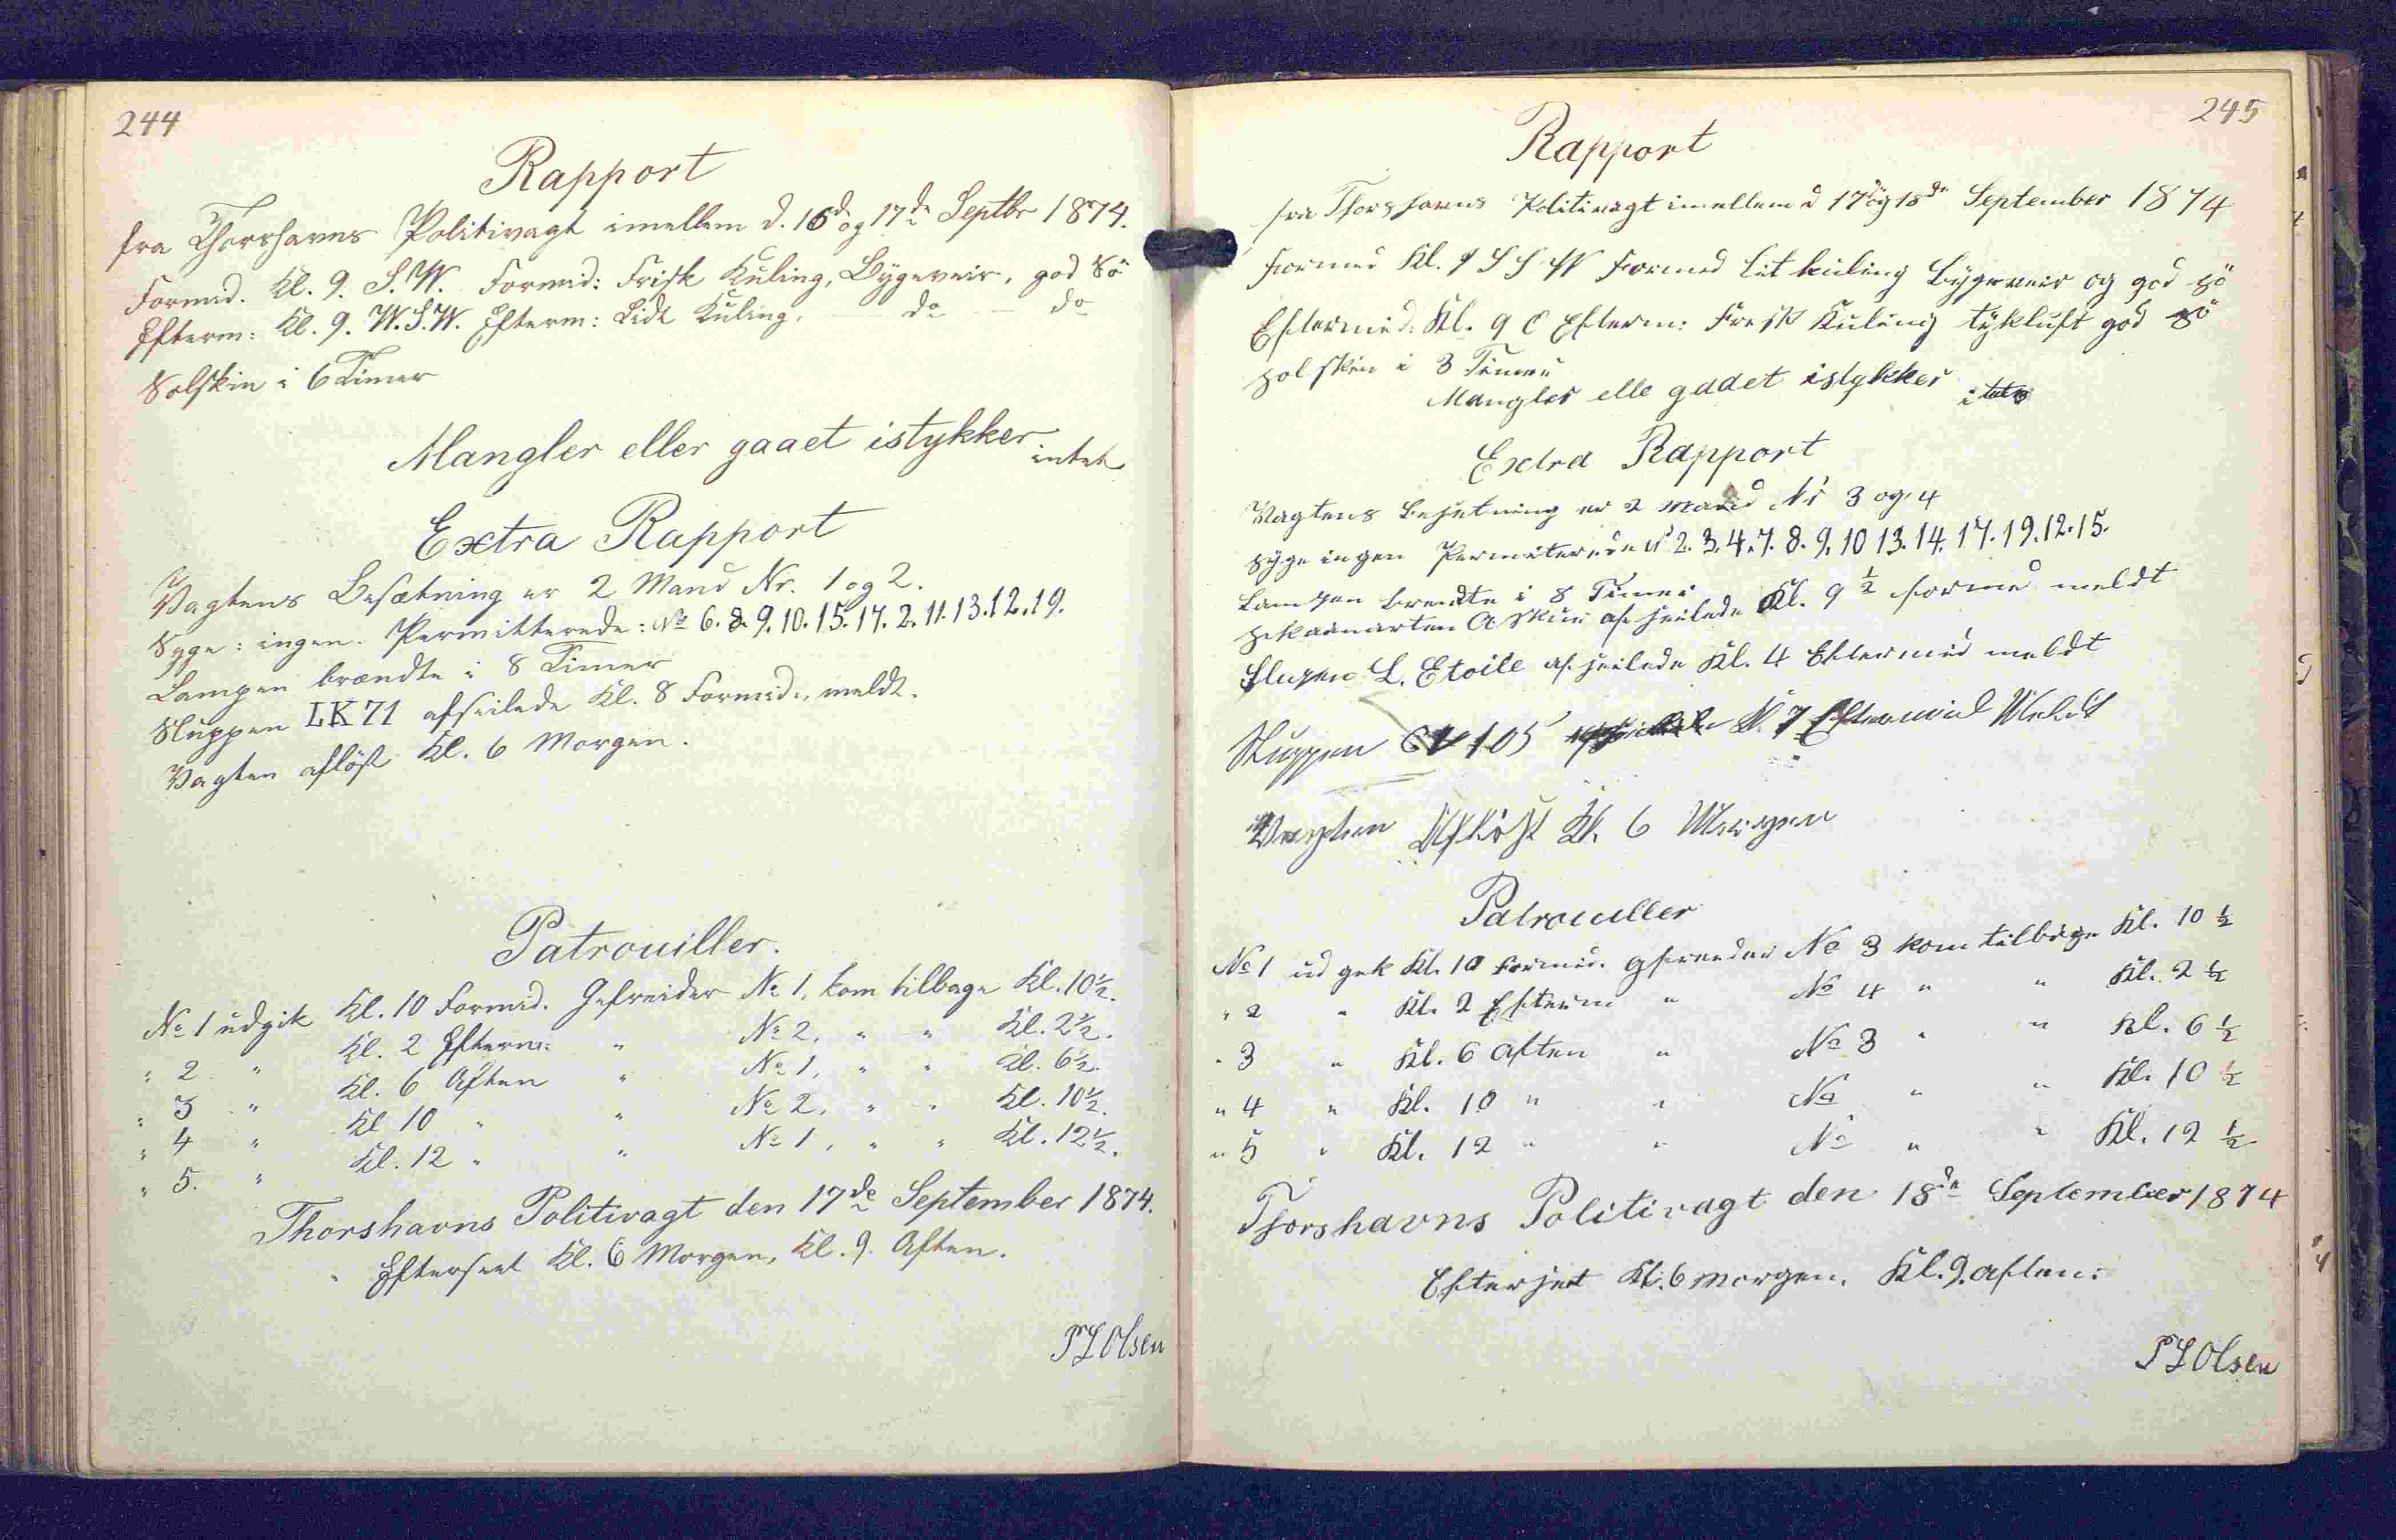 244
Rapport
fra Thorshavns Politivagt imellem d. 16d og 17de Septbr 1874.
Formd. Kl. 9. S.W. Formid: Frisk Kuling, Bygeveir, god Sö
Efterm: Kl. 9. W.S.W. Efterm: Lidt Kuling, — do — do
Solskin i 6 Timer
Mangler eller gaaet istykker
intet
Extra Rapport
Vagtens Besætning er 2 Mand Nr. 1 og 2.
Syge: ingen. Permitterede: No 6. 8. 9. 10. 15. 17. 2. 11. 13. 12. 19.
Lampen brændte i 8 Timer
Sluppen LK 71 afseilede Kl. 8 Formid., meldt.
Vagten aflöst Kl. 6 Morgen.
Patrouiller.
No 1 udgik Kl. 10 Formid. Gefreider No 1, kom tilbage Kl. 10½.
" 2 " Kl. 2 Efterm: " No 2, " " Kl. 2½.
" 3 " Kl. 6 Aften " No 1, " " Kl. 6½.
" 4 " Kl 10 " " No 2, " " Kl. 10½.
" 5. " Kl. 12 " " No 1, " " Kl. 12½.
Thorshavns Politivagt den 17de September 1874.
Efterseet Kl. 6 Morgen, Kl. 9. Aften.
P L Olsen
245
Rapport
fra Thorshavns Politivagt imellem d 17 og 18de September 1874
Formed Kl. 9 S S W Formed Lit kuling Bygeveir og god sö
Eftermid: Kl. 9 Efterm: Frisk Kuling tykluft god sö
solskin i 3 Timer
Mangler elle gadet istykker
Extra Rapport
Vagtens Besetning er 2 mand Nr 3 og 4
syge ingen Permiterede N 2. 3. 4. 7. 8. 9. 10 13. 14. 17. 19. 12. 15.
Lampen brendte i 8 Timer
af seilede Kl. 9 ½ formd meldt
Slupen L. Etoile af seilede Kl. 4 Eftermid meldt
Sluppen 105 Kl. 7 Eftermid Meldt
Vagten Aflöst Kl. 6 Morgen
Patrouller
No 1 ud gek Kl. 10 Formid. gfreeder No 3 kom tilbage Kl. 10 ½
" 2 " Kl. 2 Efterm " No 4 " " Kl. 2 ½
" 3 " Kl. 6 Aften " No 3 " " Kl. 6 ½
" 4 " Kl. 10 " " No " " Kl. 10 ½
" 5 " Kl. 12 " " No " " Kl. 12 ½
Thorshavns Politivagt den 18de September 1874
Efterset Kl. 6 morgen. Kl. 9. aften.
P L Olsen